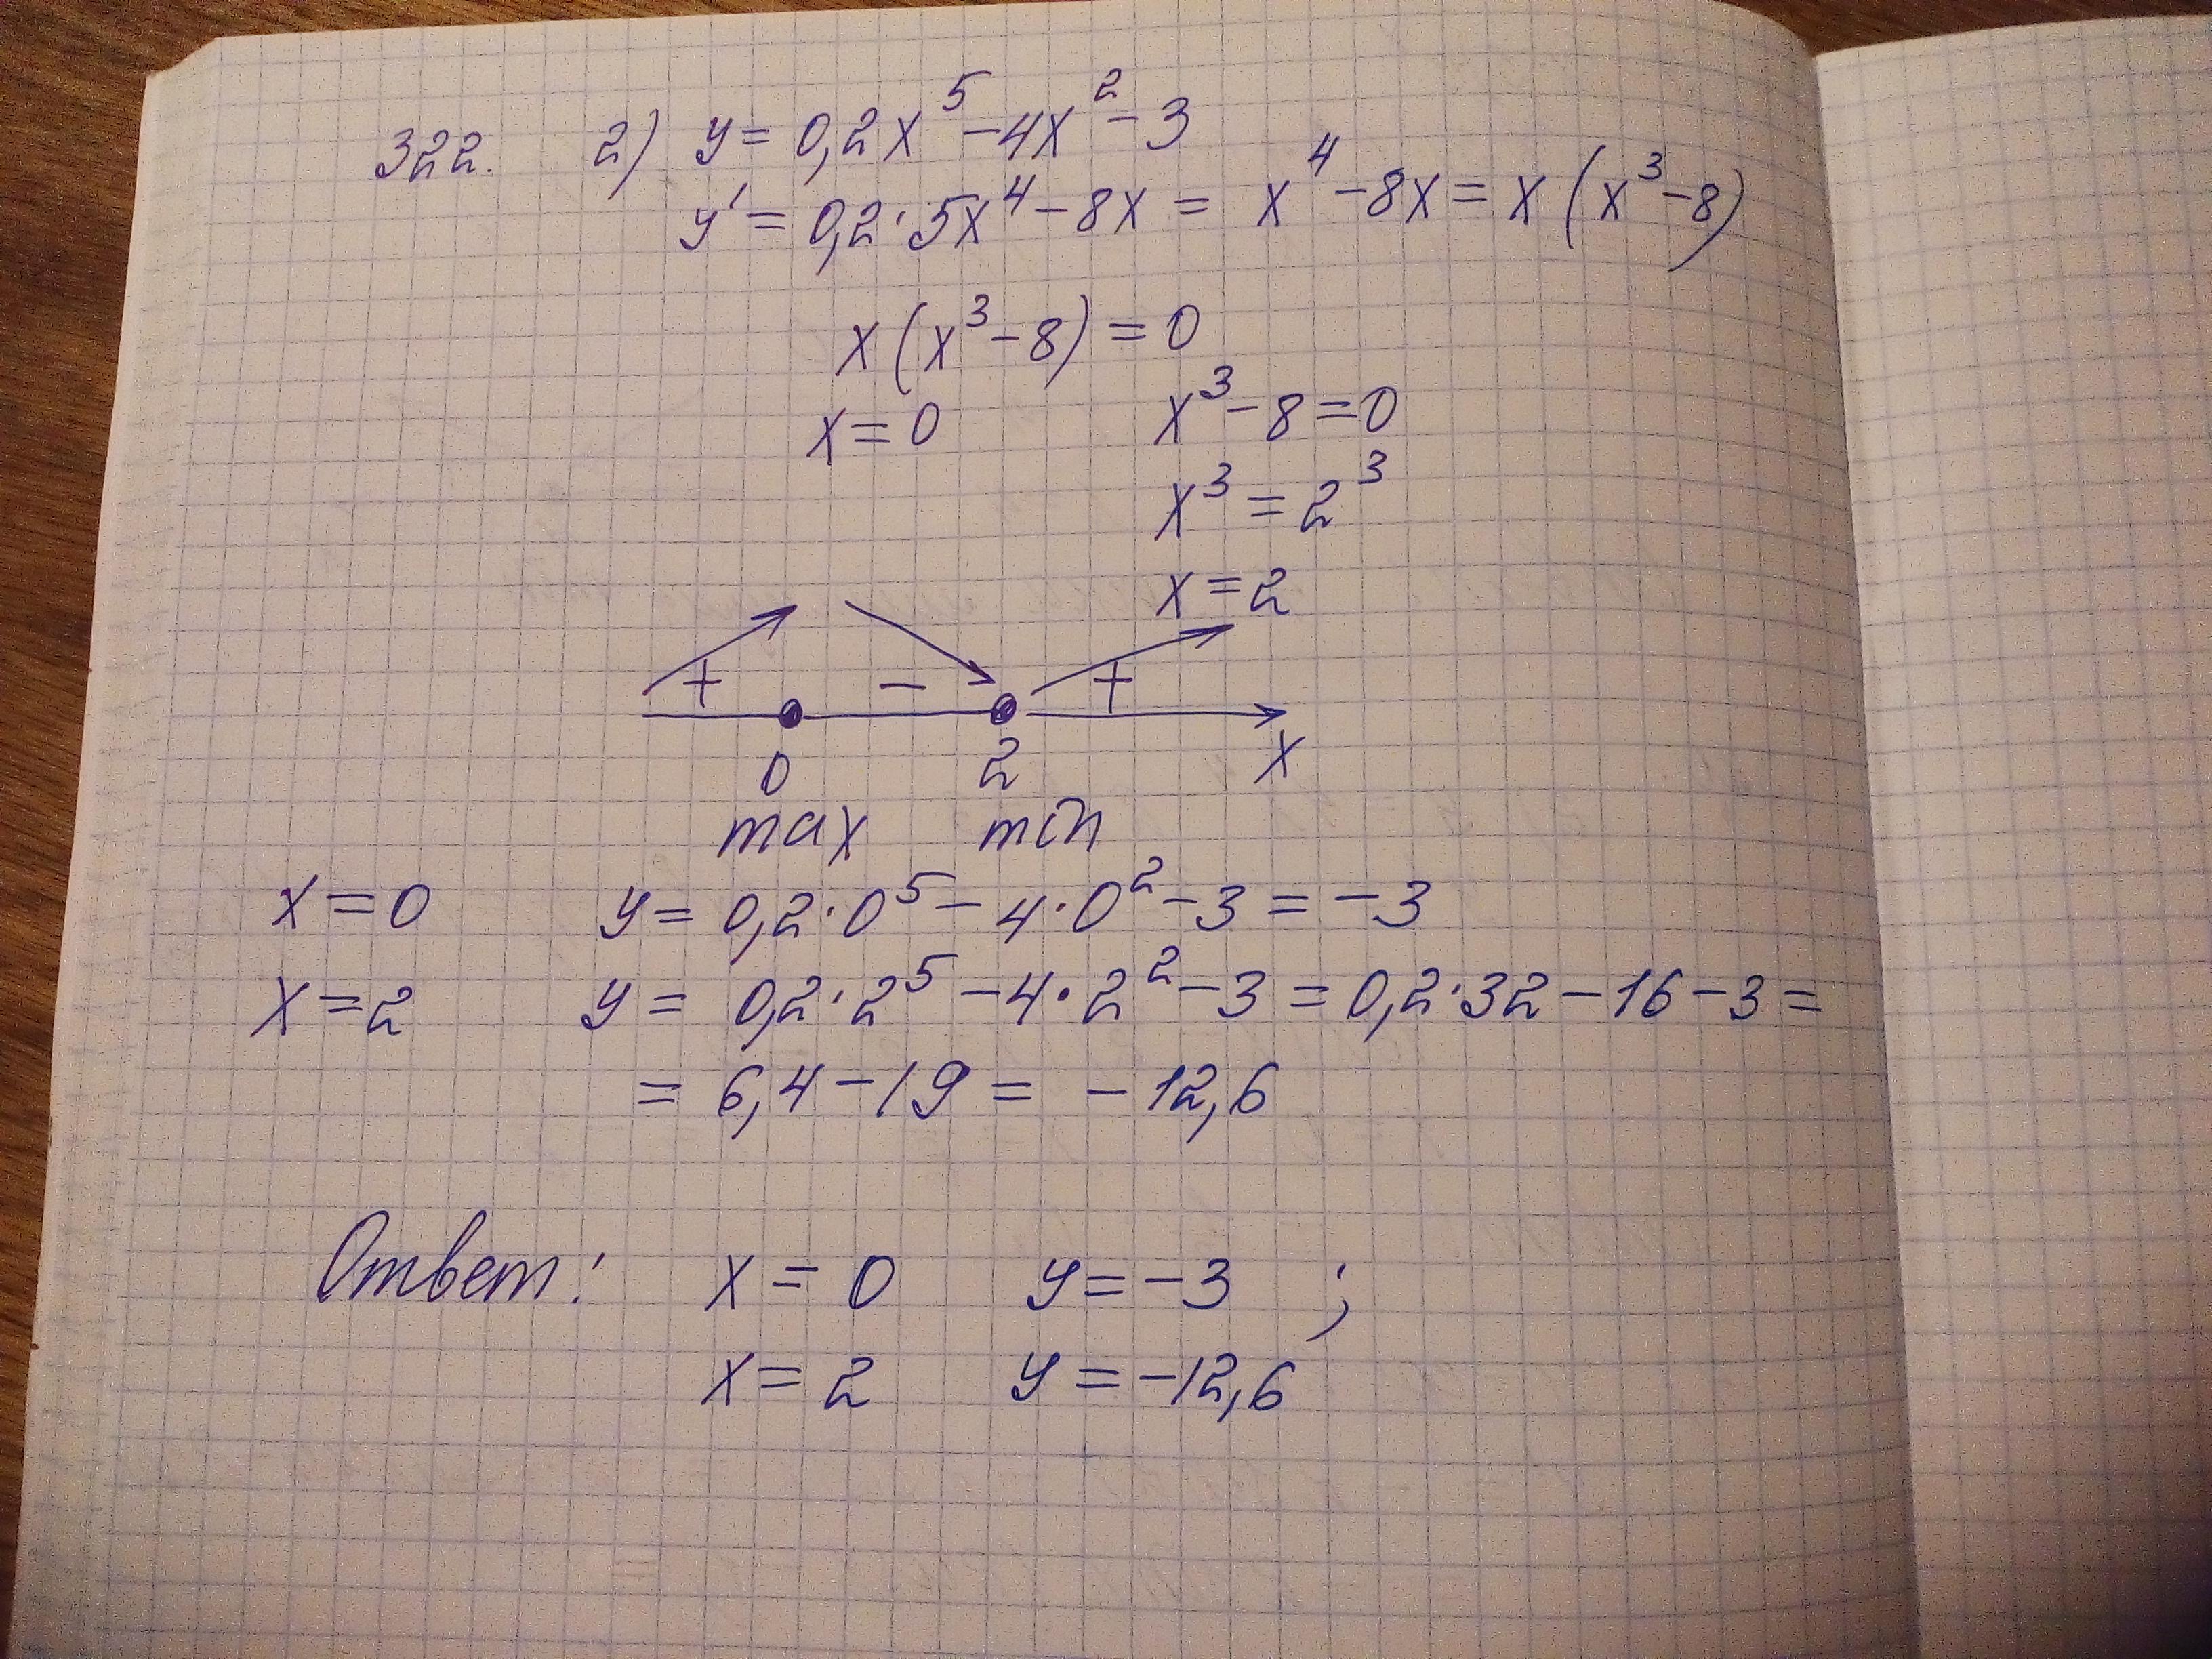 322. 2) y = 0,2x⁵ - 4x² - 3
y' = 0,2·5x⁴ - 8x = x⁴ - 8x = x(x³ - 8)
x(x³ - 8) = 0
x = 0 x³ - 8 = 0
x³ = 2³
x = 2
+ - +
0 2 x
max min
x = 0 y = 0,2·0⁵ - 4·0² - 3 = -3
x = 2 y = 0,2·2⁵ - 4·2² - 3 = 0,2·32 - 16 - 3 =
= 6,4 - 19 = -12,6
Ответ: x = 0 y = -3 ;
x = 2 y = -12,6